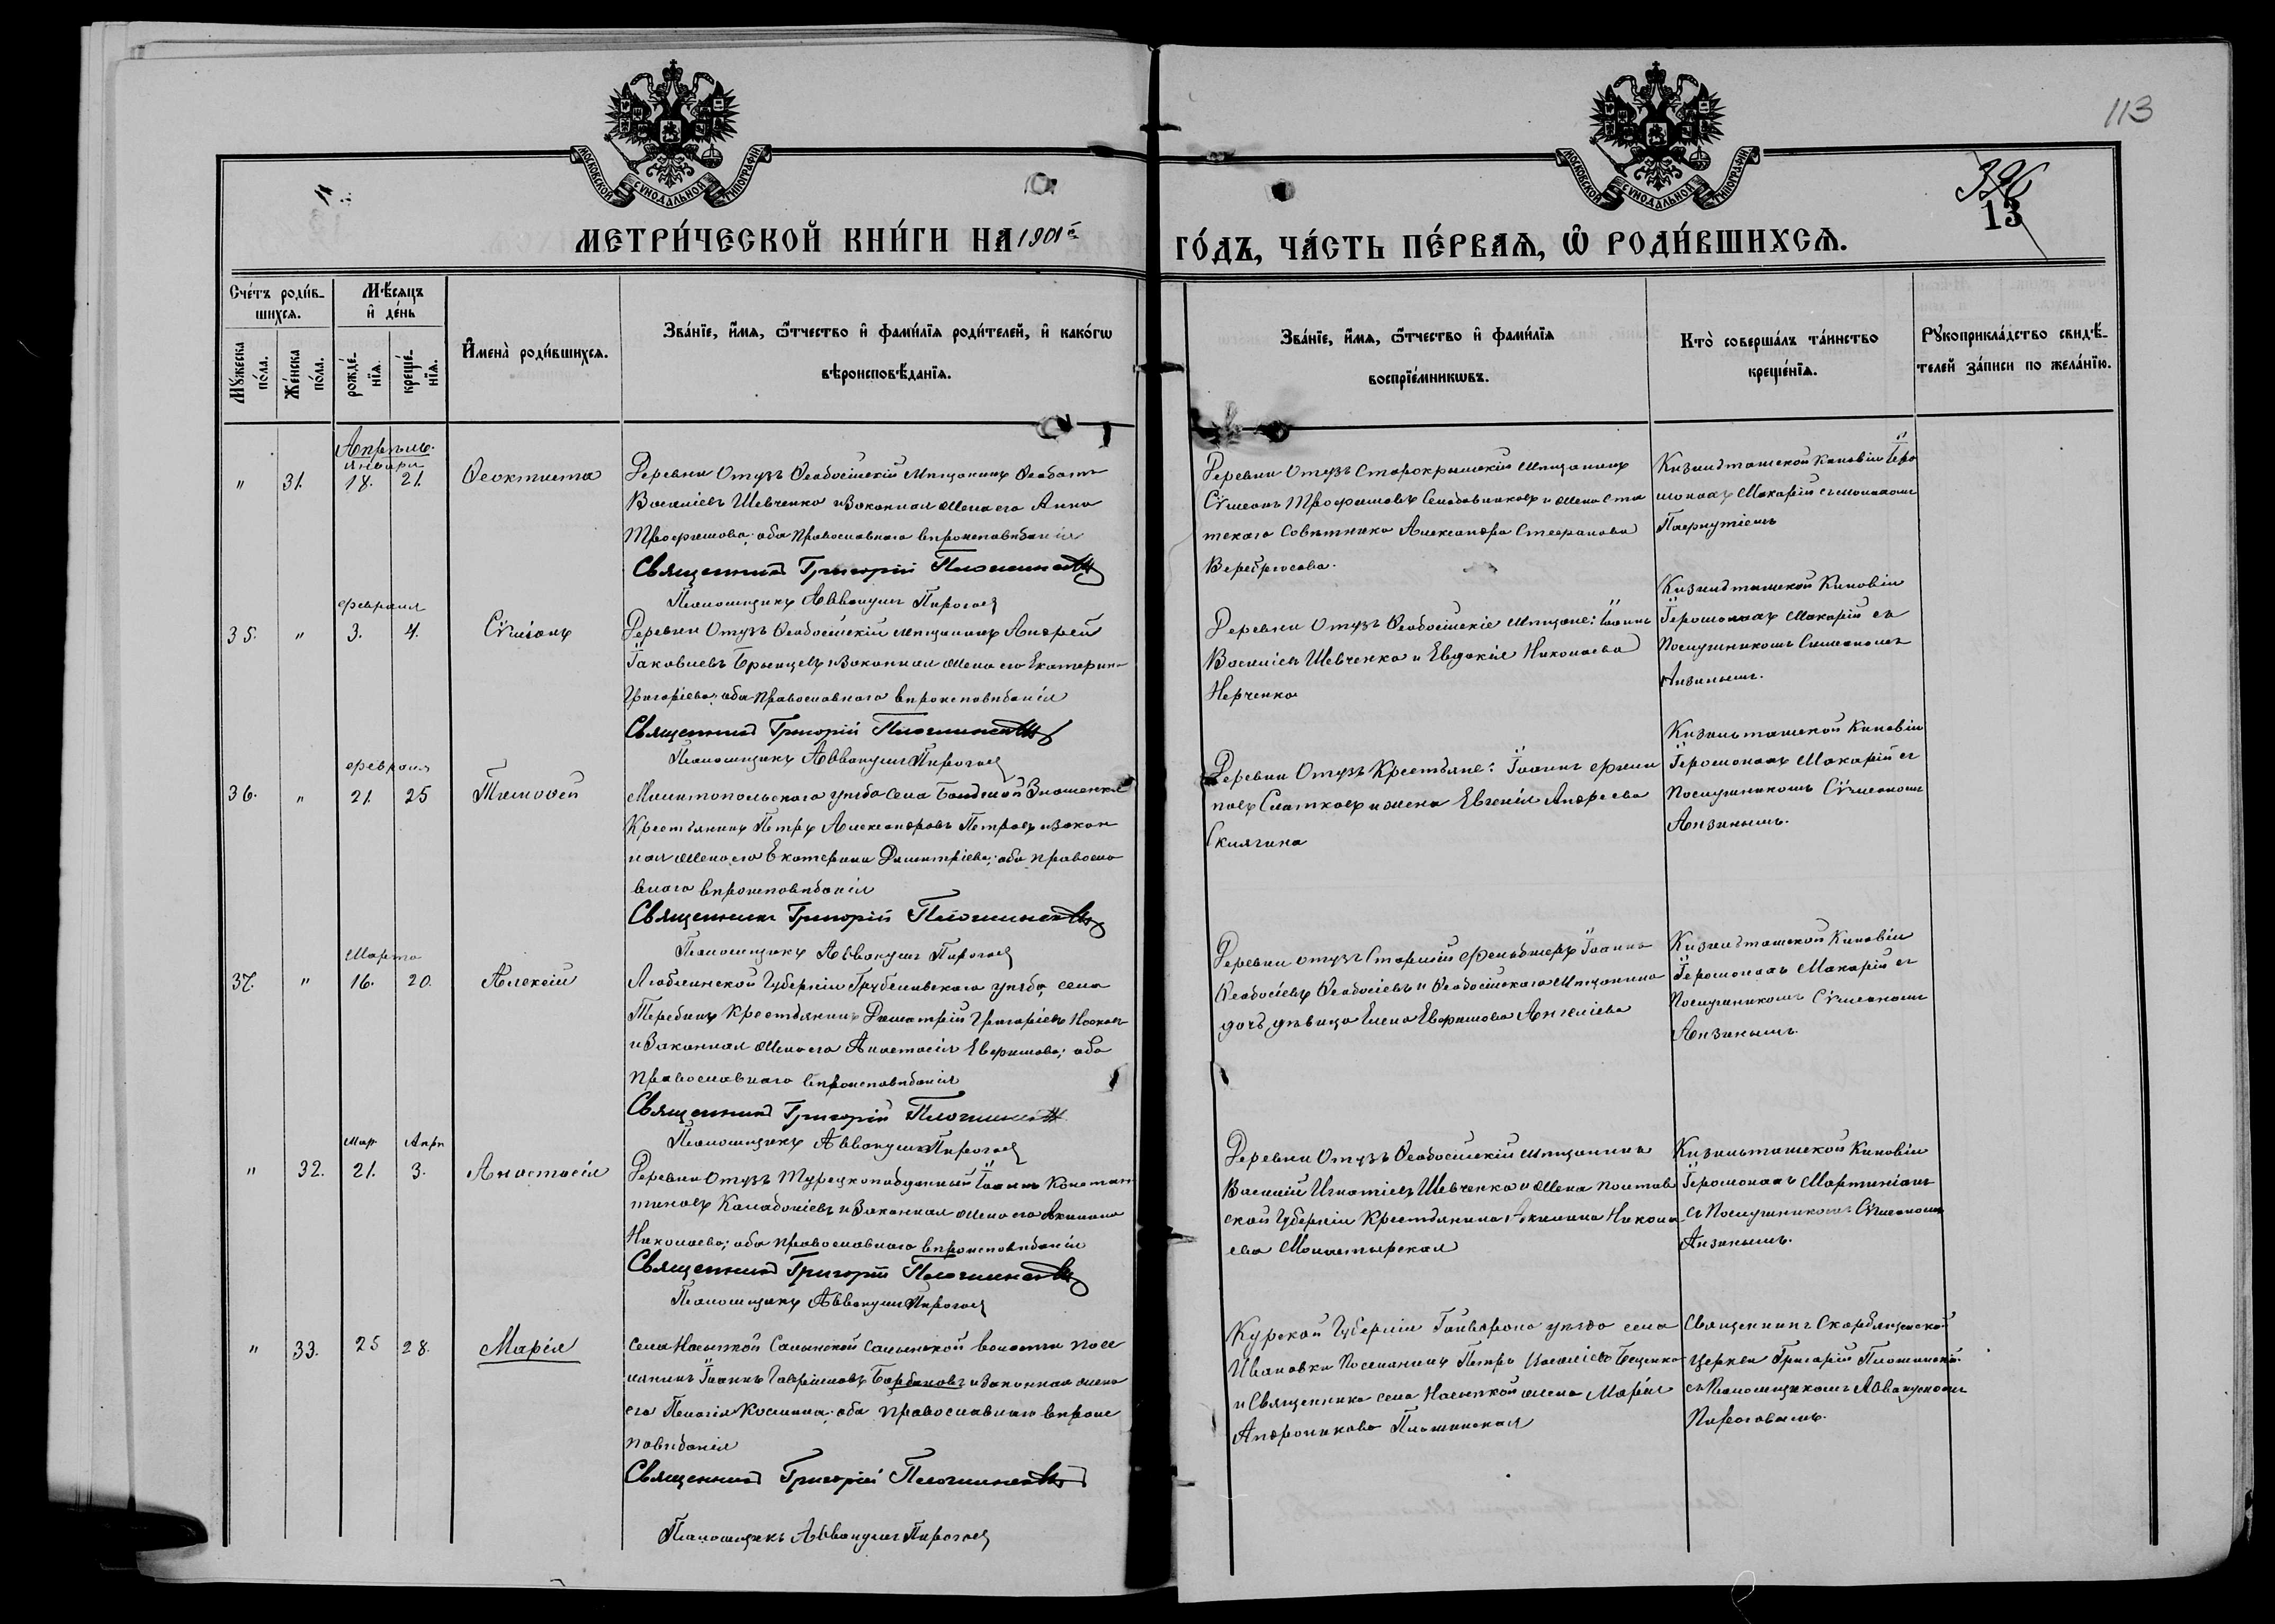 113
396
13
МОСКОВСКОЙ СѴНОДАЛЬНОЙ ТИПОГРАФІИ
МОСКОВСКОЙ СѴНОДАЛЬНОЙ ТИПОГРАФІИ
МЕТРИ́ЧЕСКОЙ КНИ́ГИ НА 1901й
ГО́ДЪ, ЧА́СТЬ ПЕ́РВАѦ, Ѡ҆ РОДИ́ВШИХСѦ.
Сче́тъ роди́в-
шихсѧ.
Мѣ́сѧцъ
и҆ де́нь
Мꙋ́жеска
по́ла.
Же́нска
по́ла.
рожде́-
нїѧ.
креще́-
нїѧ.
И҆мена̀ роди́вшихсѧ.
Зва́нїе, и҆́мѧ, ѻ҆́тчество и҆ фами́лїѧ роди́телей, и҆ како́гѡ
вѣроисповѣ́данїѧ.
Зва́нїе, и҆́мѧ, ѻ҆́тчество и҆ фами́лїѧ
воспрїе́мникѡвъ.
Кто̀ соверша́лъ та́инство
креще́нїѧ.
Рꙋкоприкла́дство свидѣ́-
телей за́писи по жела́нїю.
Апрѣль.
января
" 31. 18. 21. Ѳеоктиста
Деревни Отузъ Ѳеодосійскій Мѣщанинъ
Василіевъ Шевченко и Законная Жена его Анна
Трофимова; оба Православнаго вѣроисповѣданія
Священникъ Григорій
Псаломщикъ Аввакумъ Пироговъ
Деревни Отузъ Старокрымскій Мѣщанинъ
Сѵмеонъ Трофимовъ и Жена Ста
тскаго Совѣтника Александра Стефанова
Кизильташской Киновіи Іеро
монахъ Макарій съ монахомъ
Пафнутіемъ
февраля
35. " 3. 4. Сѵмеонъ
Деревни Отузъ Ѳеодосійскій мѣщанинъ Андрей
Іаковлевъ и Законная Жена его Екатерина
Григоріева; оба Православнаго вѣроисповѣданія
Священникъ Григорій
Псаломщикъ Аввакумъ Пироговъ
Деревни Отузъ Ѳеодосійскіе Мѣщане: Іоаннъ
Василіевъ Шевченко и Евдокія Николаева
Кизильташской Киновіи
Іеромонахъ Макарій съ
Послушникомъ Симеономъ
февраля
36. " 21. 25 Тимоѳей
Мелитопольскаго уѣзда Села Знаменки
Крестьянинъ Петръ Александровъ Петровъ и Закон
ная Жена его Екатерина Димитріева; оба Правосла
внаго вѣроисповѣданія
Священникъ Григорій
Псаломщикъ Аввакумъ Пироговъ
Деревни Отузъ Крестьяне: Іоаннъ Филип
повъ и жена Евгенія Андреева
Кизильташской Киновіи
Іеромонахъ Макарій съ
Послушникомъ Сѵмеономъ
Марта
37. " 16. 20. Алексій
Люблинской Губерніи Грубешовскаго уѣзда, села
Теребинъ Крестьянинъ Димитрій Григоріевъ
и Законная Жена его Анастасія Евфимова; оба
Православнаго вѣроисповѣданія
Священникъ Григорій
Псаломщикъ Аввакумъ Пироговъ
Деревни Отузъ Старшій фельдшеръ
Ѳеодосіевъ и Ѳеодосійскаго Мѣщанина
дочь, дѣвица Елена Евфимова
Кизильташской Киновіи
Іеромонахъ Макарій съ
Послушникомъ Сѵмеономъ
Мар. Апрѣ
" 32. 21. 3. Анастасія
Деревни Отузъ Турецкоподданный Іоаннъ Констан
тиновъ и Законная Жена его Акилина
Николаева; оба Православнаго вѣроисповѣданія
Священникъ Григорій
Псаломщикъ Аввакумъ Пироговъ
Деревни Отузъ Ѳеодосійскій мѣщанинъ
Василій Игнатіевъ Шевченко и Жена Полтав
ской Губерніи Крестьянина Акилина Никола
ева Монастырская
Кизильташской Киновіи
Іеромонахъ Мартиніанъ
съ Послушникомъ Сѵмеономъ
" 33. 25 28. Марія
Села Насыпкой Салынской волости посе
лянинъ Іоаннъ Гавріиловъ и Законная жена
его Пелагія Космина оба Православнаго вѣроис
повѣданія
Священникъ Григорій
Псаломщикъ Аввакумъ Пироговъ
Курской Губерніи уѣзда села
Ивановки Поселянинъ Петръ
и Священника села Насыпкой жена Марія
Андроникова
Священникъ Скорбященской
церкви Григорій
съ Псаломщикомъ Аввакумомъ
Пироговымъ.